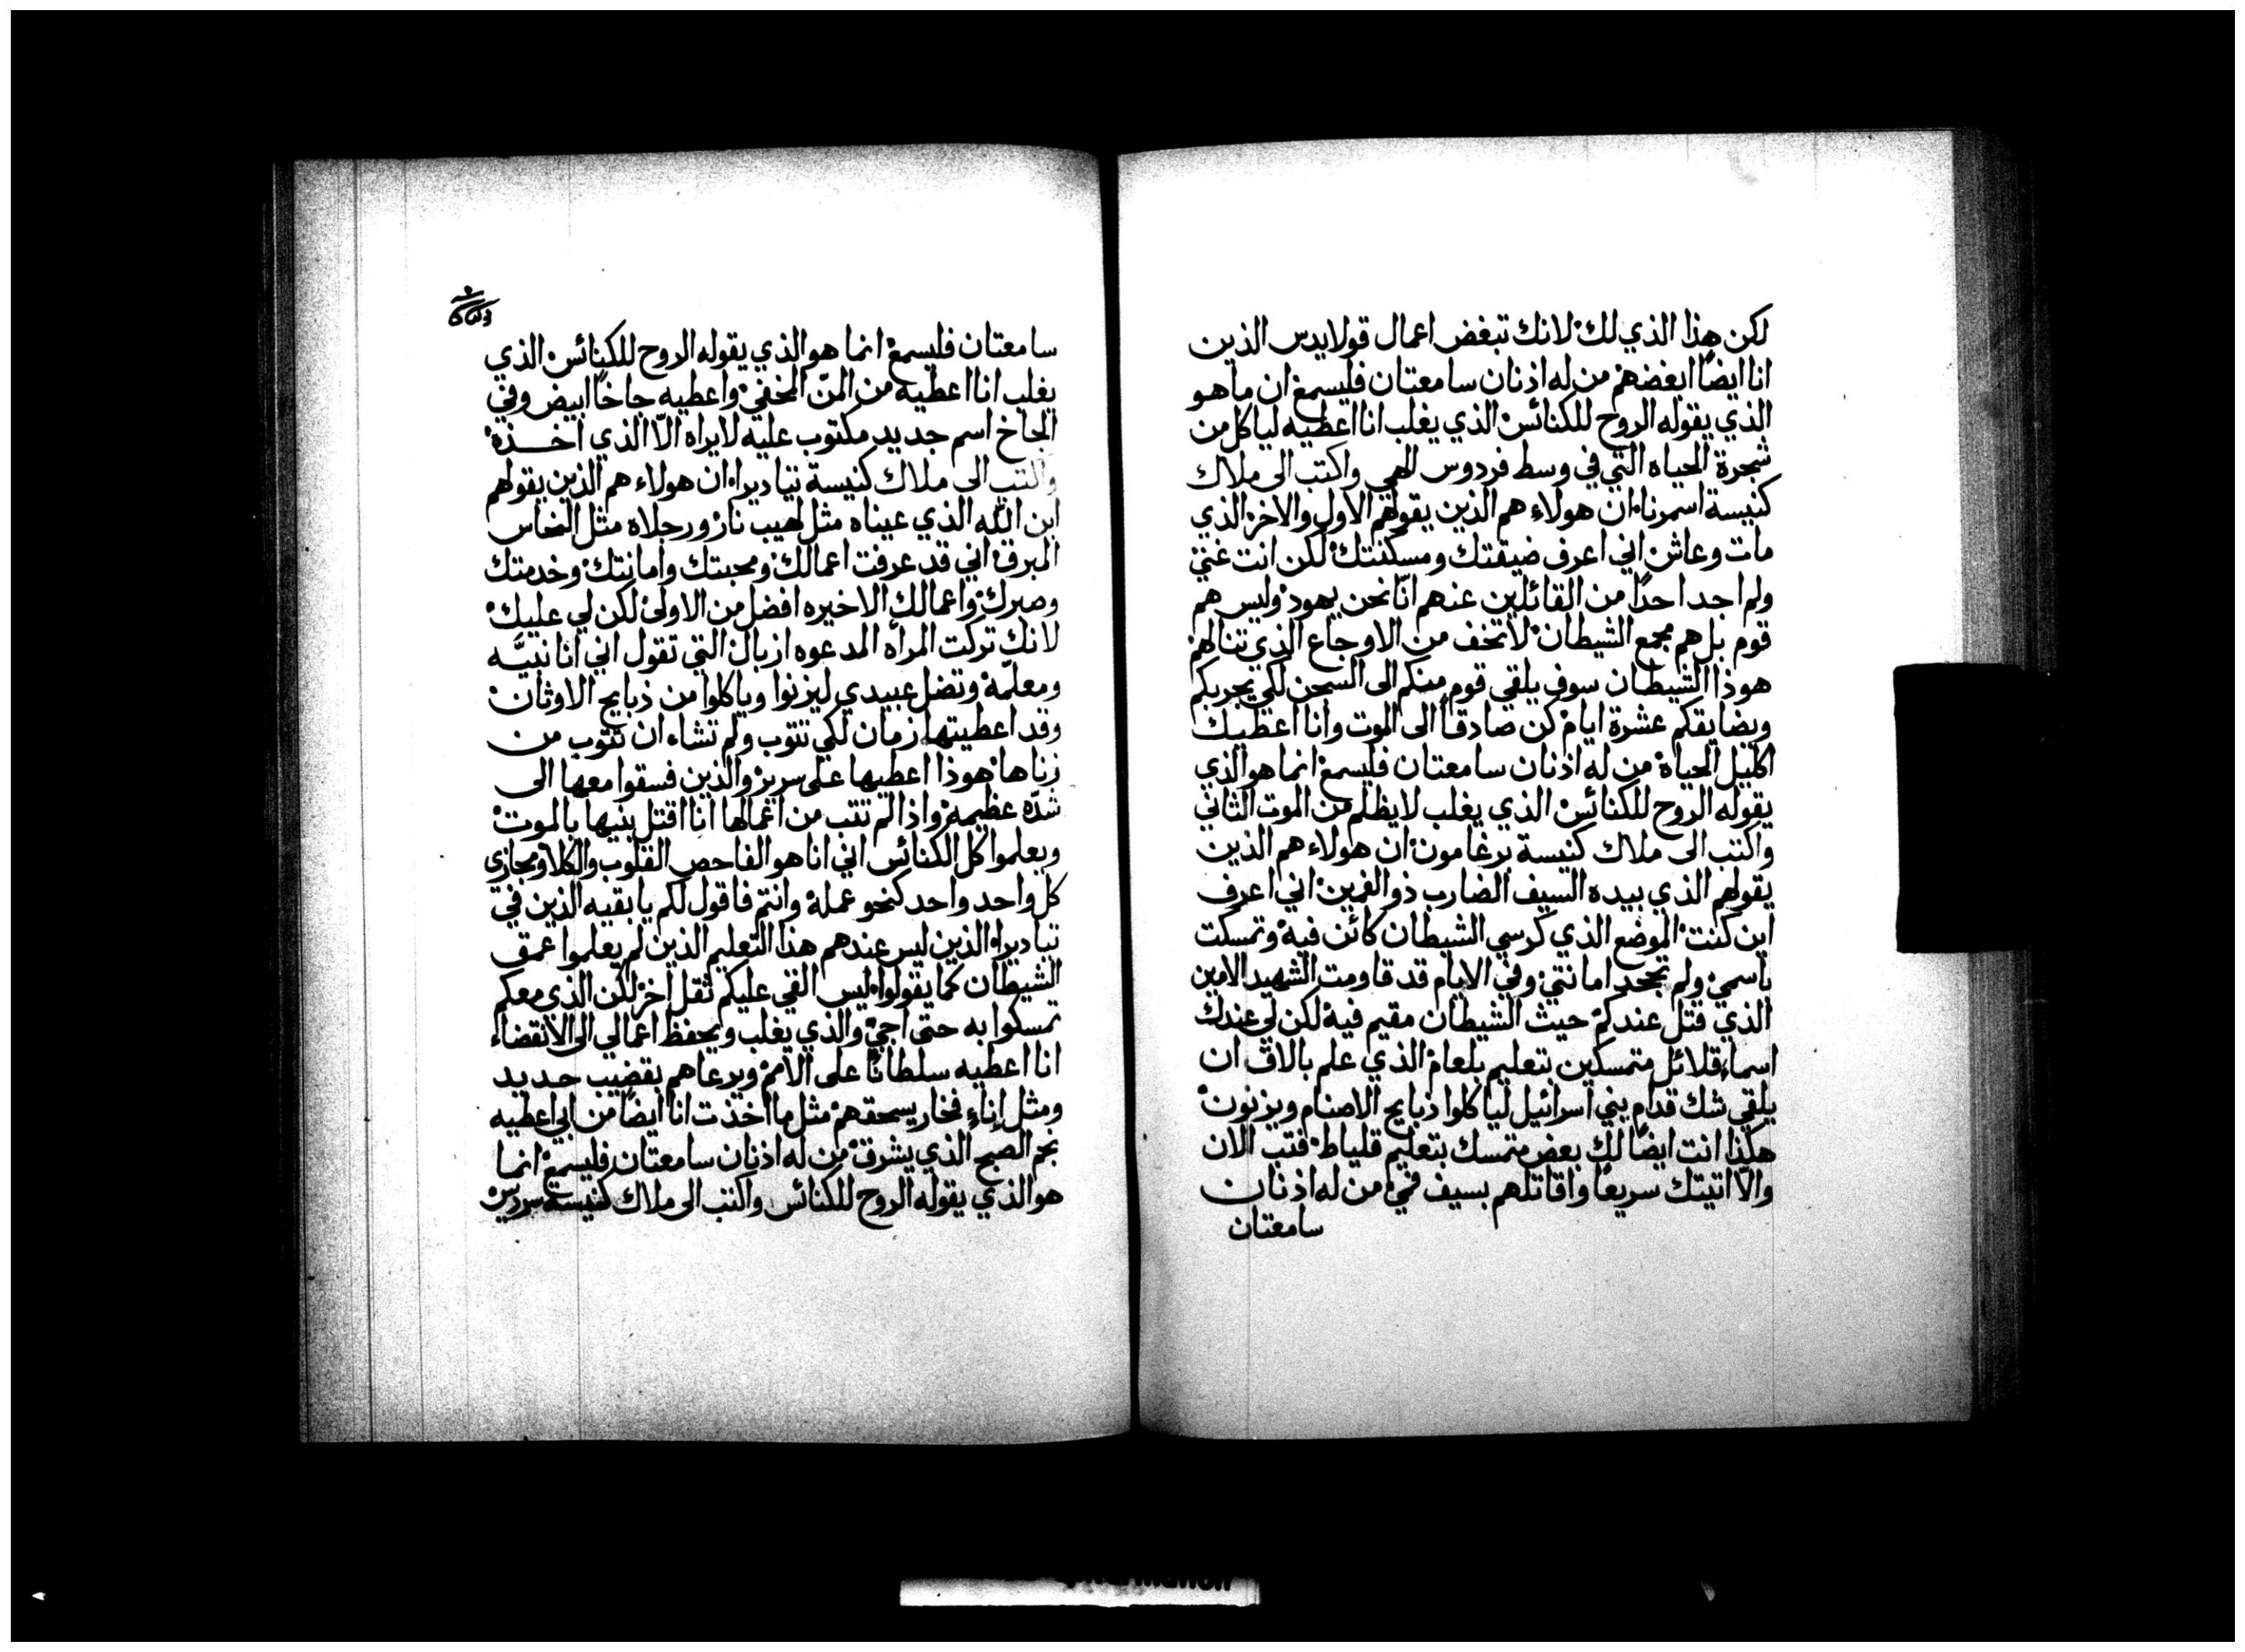 لكن هذا الذي لك لانك تبغض اعمال قولايدس الذين
انا ايضًا ابغضهم من له اذنان سامعتان فليسمع ان ما هو
الذي يقوله الروح للكنائس الذي يغلب انا اعطيه لياكل من
شجرة الحياه التي في وسط فردوس الهي واكتب الى ملاك
كنيسة اسمرنا ان هولاء هم الذين يقولهم الاول والاخر الذي
مات وعاش اني اعرف ضيقتك ومسكنتك لكن انت غني
ولم اجد احدًا من القائلين عنهم انّا نحن يهود وليس هم
قوم بل هم مجمع الشيطان لا تخف من الاوجاع الذي تنالهم
هوذا الشيطان سوف يلقي قوم منكم الى السجن لكي يجربكم
ويضايقكم عشرة ايام كن صادقاً الى الموت وانا اعطيك
اكليل الحياة من له اذنان سامعتان فليسمع انما هو الذي
يقوله الروح للكنائس الذي يغلب لا يظلم من الموت الثاني
واكتب الى ملاك كنيسة برغامون ان هولاء هم الذين
يقولهم الذي بيده السيف الضارب ذو الفمين اني اعرف
اين كنت الموضع الذي كرسي الشيطان كائن فيه وتمسكت
باسمي ولم تجحد امانتي وفي الايام قد قاومت الشهيد الامين
الذي قتل عندكم حيث الشيطان مقيم فيه لكن لي عندك
اسماء قلائل متمسكين بتعليم بلعام الذي علم بالاق ان
يلقي شك قدام بني اسرائيل لياكلوا ذبايح الاصنام ويزنون
هكذا انت ايضًا لك بعض متمسك بتعليم قلياط فتب الان
والّا اتيتك سريعًا واقاتلهم بسيف فمي من له اذنان
سامعتان
سامعتان فليسمع انما هو الذي يقوله الروح للكنائس الذي
يغلب انا اعطيه من المنّ المخفي واعطيه جاخًا ابيض وفي
الجاخ اسم جديد مكتوب عليه لا يراه الّا الذي اخذه
واكتب الى ملاك كنيسة تياديرا ان هولاء هم الذين يقولهم
ابن الله الذي عيناه مثل لهيب نار ورجلاه مثل النحاس
المبرق اني قد عرفت اعمالك ومحبتك وامانتك وخدمتك
وصبرك واعمالك الاخيره افضل من الاولى لكن لي عليك
لانك تركت المراه المدعوه ازبال التي تقول اني انا نبيّه
ومعلّمة وتضل عبيدي ليزنوا وياكلوا من ذبايح الاوثان
وقد اعطيتها زمان لكي تتوب ولم تشاء ان تتوب من
زناها هوذا اعطيها على سرير والذين فسقوا معها الى
شدّه عظيمه واذا لم تتب من اعمالها انا اقتل بنيها بالموت
ويعلموا كل الكنائس اني انا هو الفاحص القلوب والكلا ومجازي
كل واحد واحد كنحو عمله وانتم فاقول لكم يا بقيه الذين في
تياديرا الذين ليس عندهم هذا التعليم الذين لم يعلموا عمق
الشيطان كما يقولوا ليس القي عليكم ثقل اخر لكن الذي معكم
تمسكوا به حتى اجي والذي يغلب ويحفظ اعمالي الى الانقضاء
انا اعطيه سلطانًا على الامم ويرعاهم بقضيب حديد
ومثل إناءِ فخار يسحقهم مثل ما اخذت انا ايضًا من ابي اعطيه
نجم الصبح الذي يشرق من له اذنان سامعتان فليسمع انما
هو الذي يقوله الروح للكنائس واكتب الى ملاك كنيسة سرديس